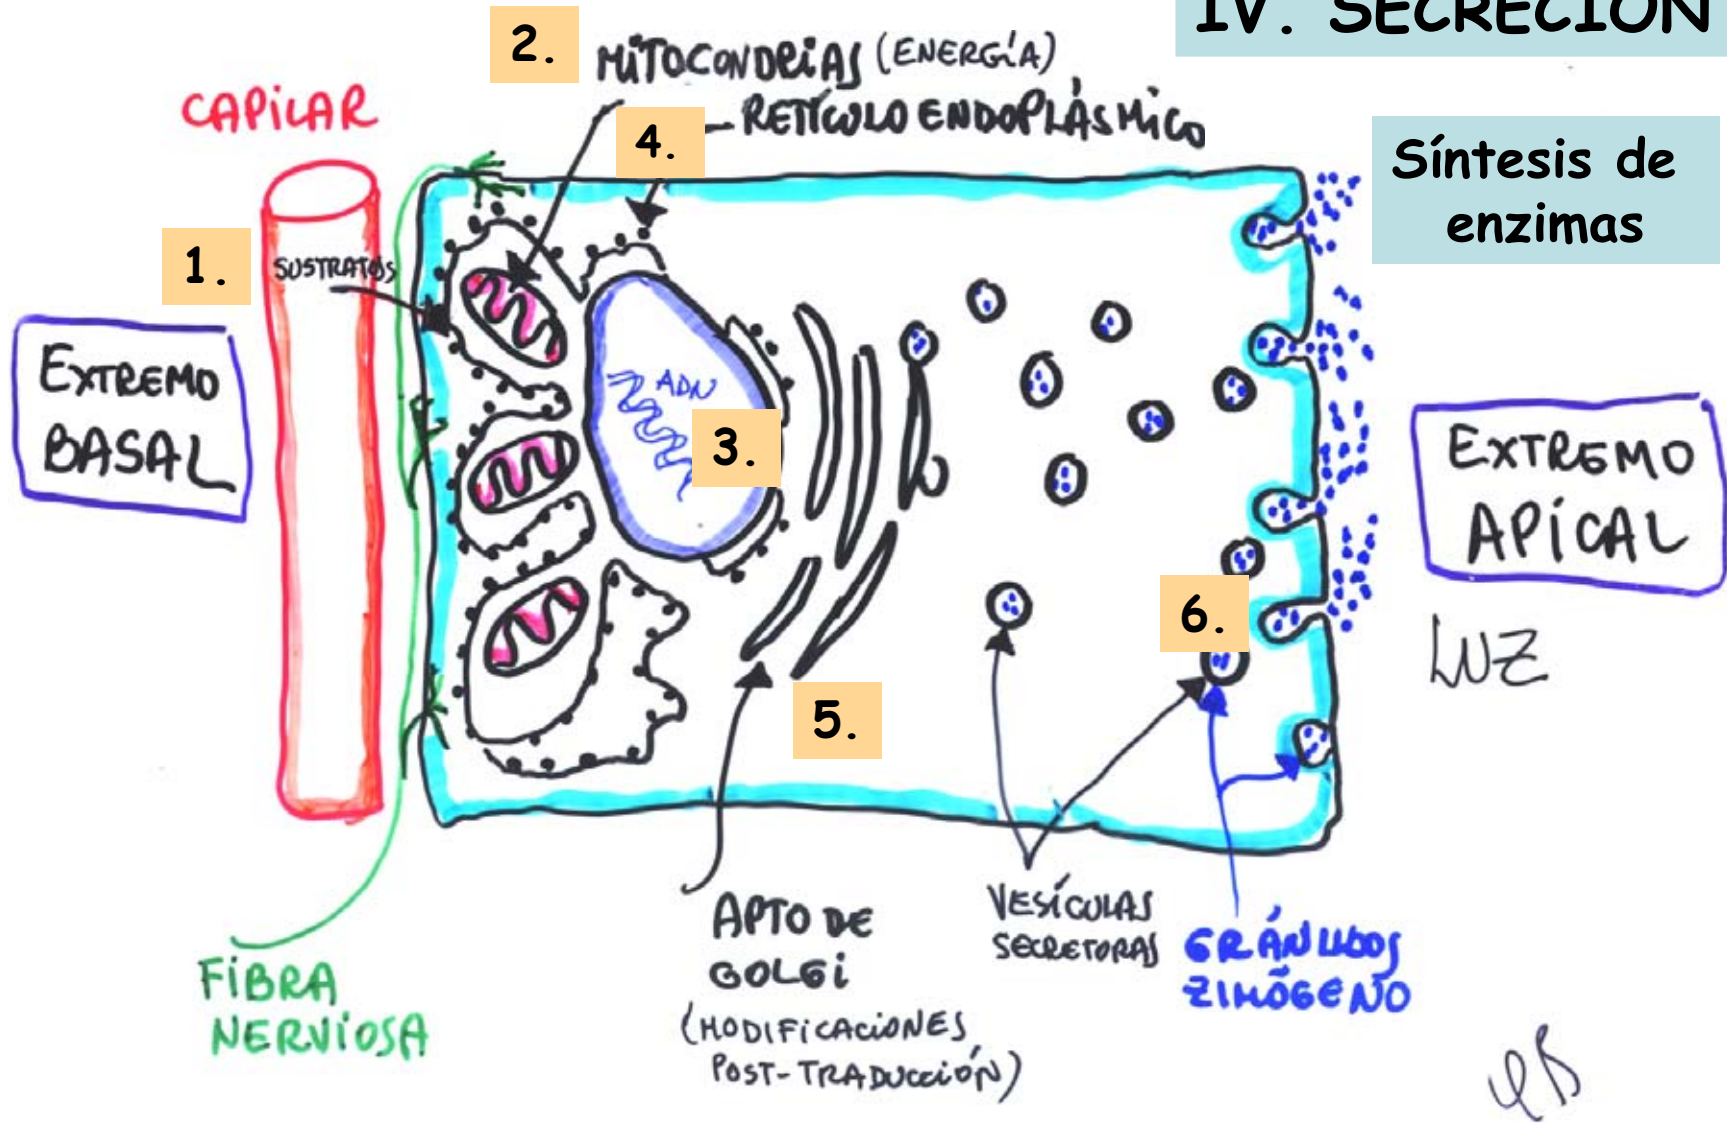 IV. SECRECIÓN
Síntesis de
enzimas
2.
MITOCONDRIAS (ENERGÍA)
4.
RETÍCULO ENDOPLÁSMICO
CAPILAR
1.
SUSTRATOS
EXTREMO
BASAL
ADN
3.
EXTREMO
APICAL
LUZ
6.
5.
APTO DE
GOLGI
(MODIFICACIONES
POST-TRADUCCIÓN)
VESÍCULAS
SECRETORAS
GRÁNULOS
ZIMÓGENO
FIBRA
NERVIOSA